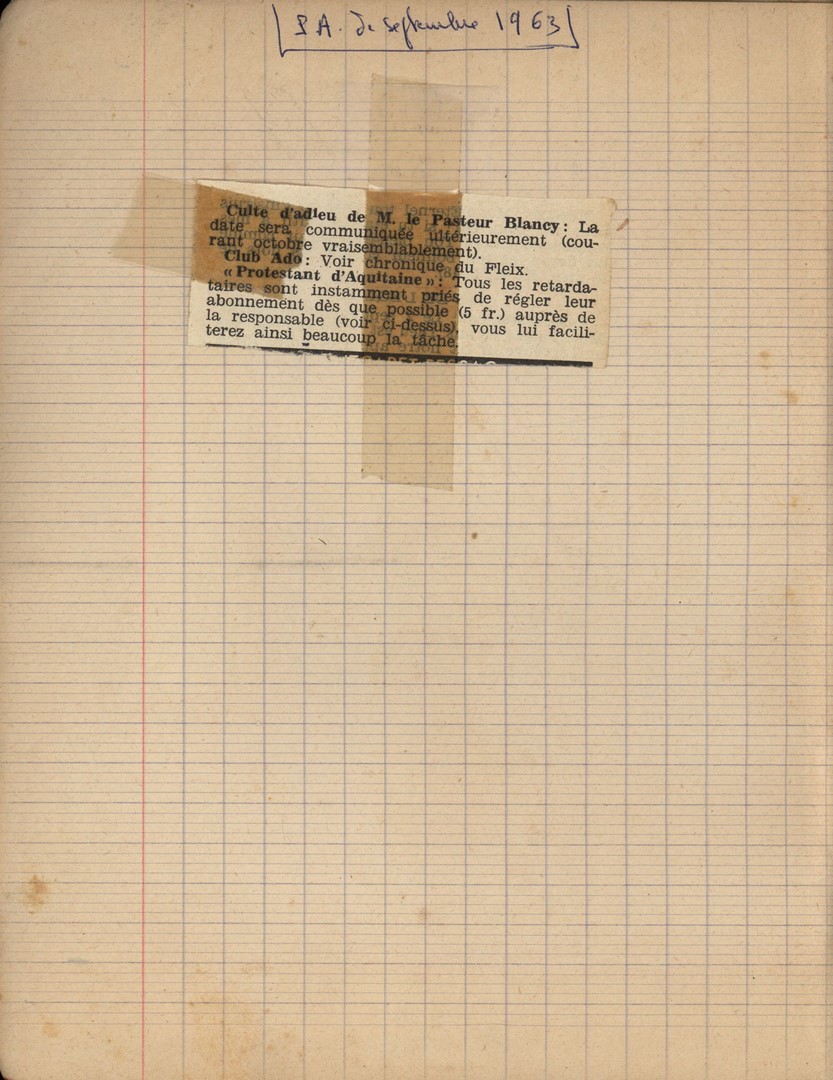 P.A. de septembre 1963
Culte d'adieu de M. le Pasteur Blancy : La
date sera communiquée ultérieurement (cou-
rant octobre vraisemblablement).
Club Ado : Voir chronique du Fleix.
« Protestant d'Aquitaine » : Tous les retarda-
taires sont instamment priés de régler leur
abonnement dès que possible (5 fr.) auprès de
la responsable (voir ci-dessus), vous lui facili-
terez ainsi beaucoup la tâche.